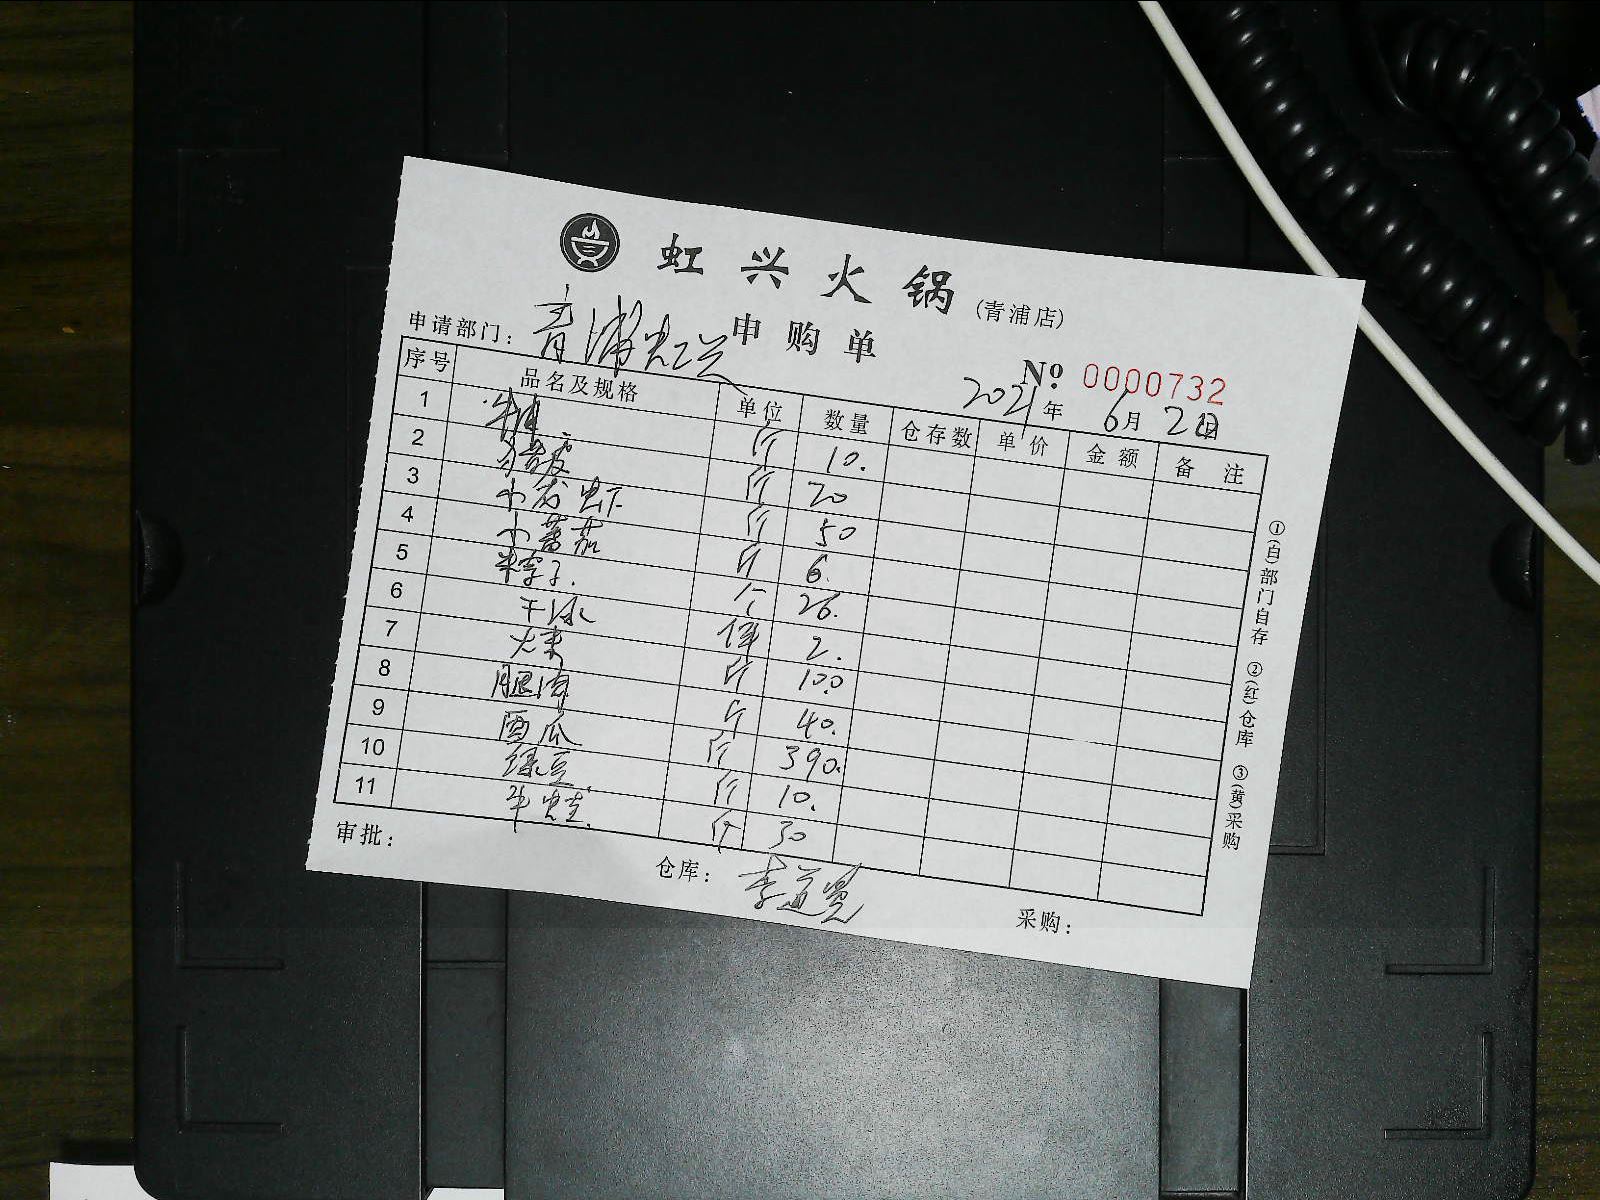 虹兴火锅 (青浦店)
申购单
申请部门：青浦虹兴
№ 0000732
2021年 6月 2日
序号 品名及规格 单位 数量 仓存数 单价 金额 备注
1 斤 10.
2 斤 20
3 小龙虾 斤 50
4 小蕃茄 斤 6.
5 个 26.
6 干冰 件 2.
7 斤 100
8 斤 40.
9 西瓜 斤 390.
10 绿豆 斤 10.
11 牛蛙. 斤 30
审批：
仓库：李道
采购：
①(白)部门自存 ②(红)仓库 ③(黄)采购